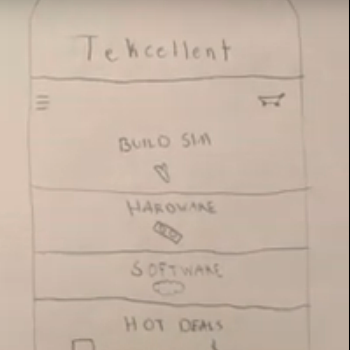 Tekcellent
BUILD SIM
HARDWARE
SOFTWARE
HOT DEALS